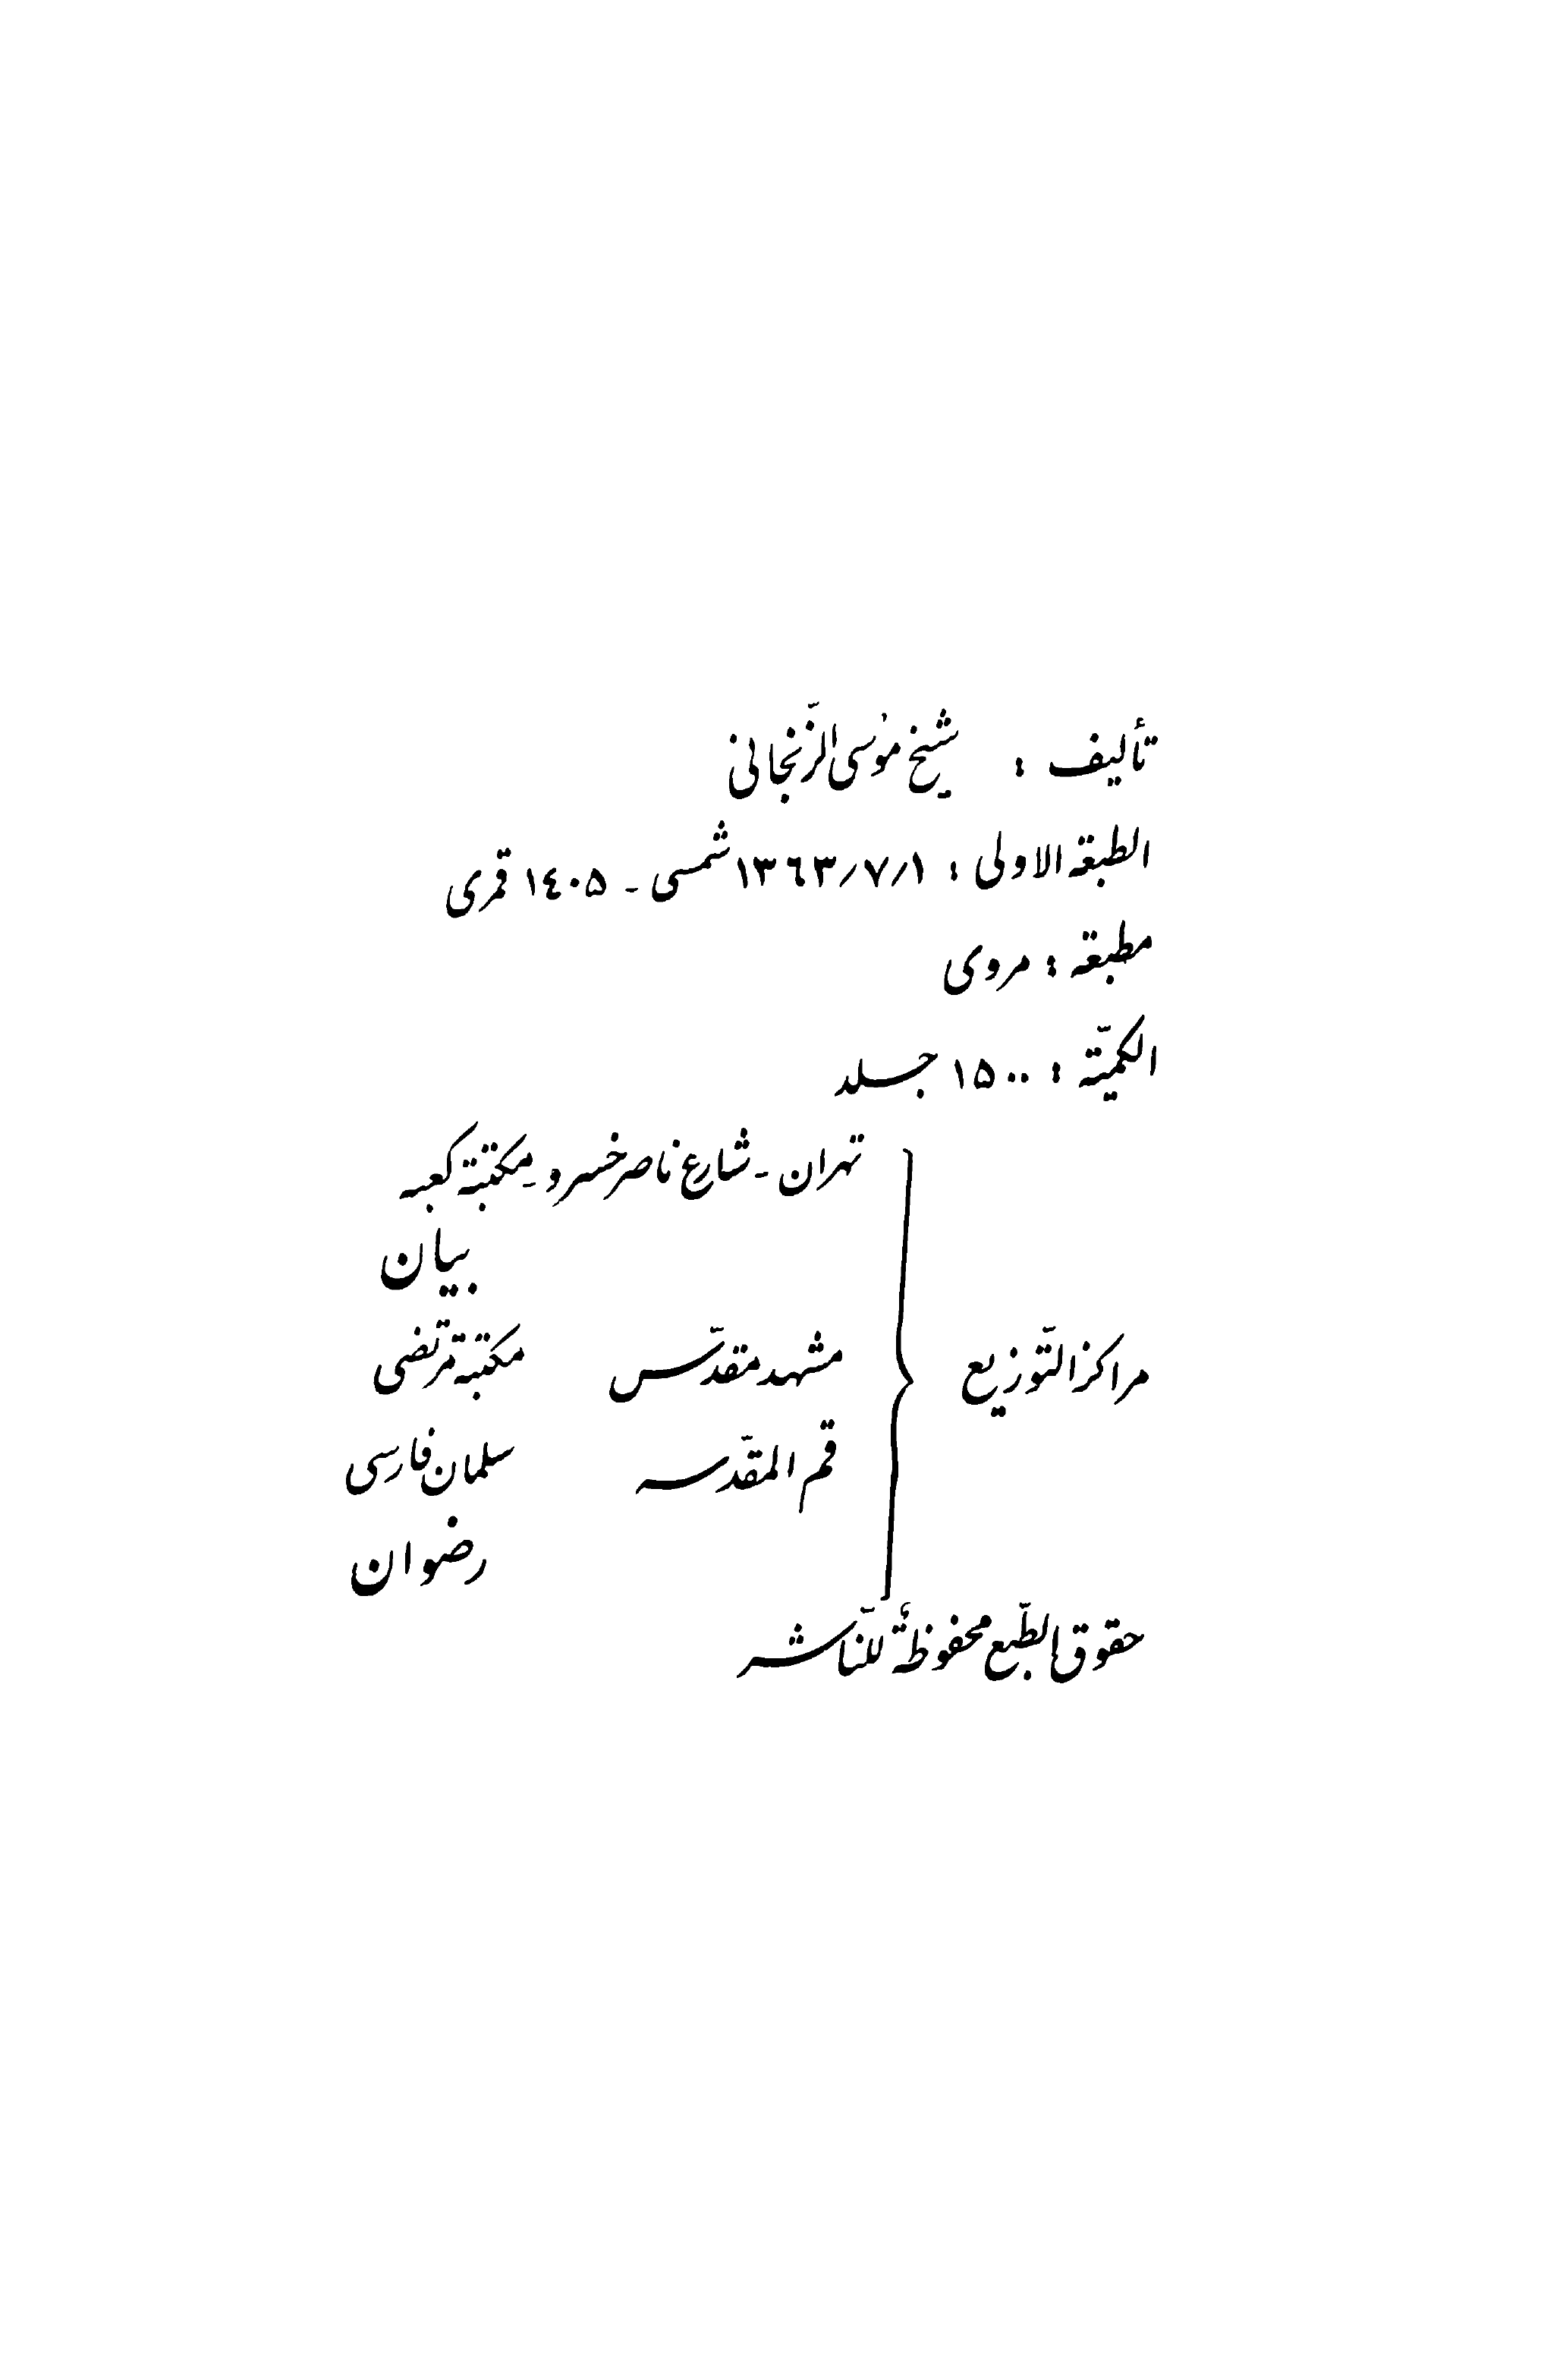 تأليف : شيخ موسى الزّنجانى
الطبعة الاولى : ١٣٦٣/٧/١ شمسى - ١٤٠٥ قمرى
مطبعة : مروى
الكميّة : ١٥٠٠ جلد
تهران - شارع ناصر خسرو - مكتبة كعبه
بيان
مراكز التّوزيع
مشهد مقدّس مكتبة مرتضى
قم المقدّسه سلمان فارسى
رضوان
حقوق الطّبع محفوظة للنّاشر